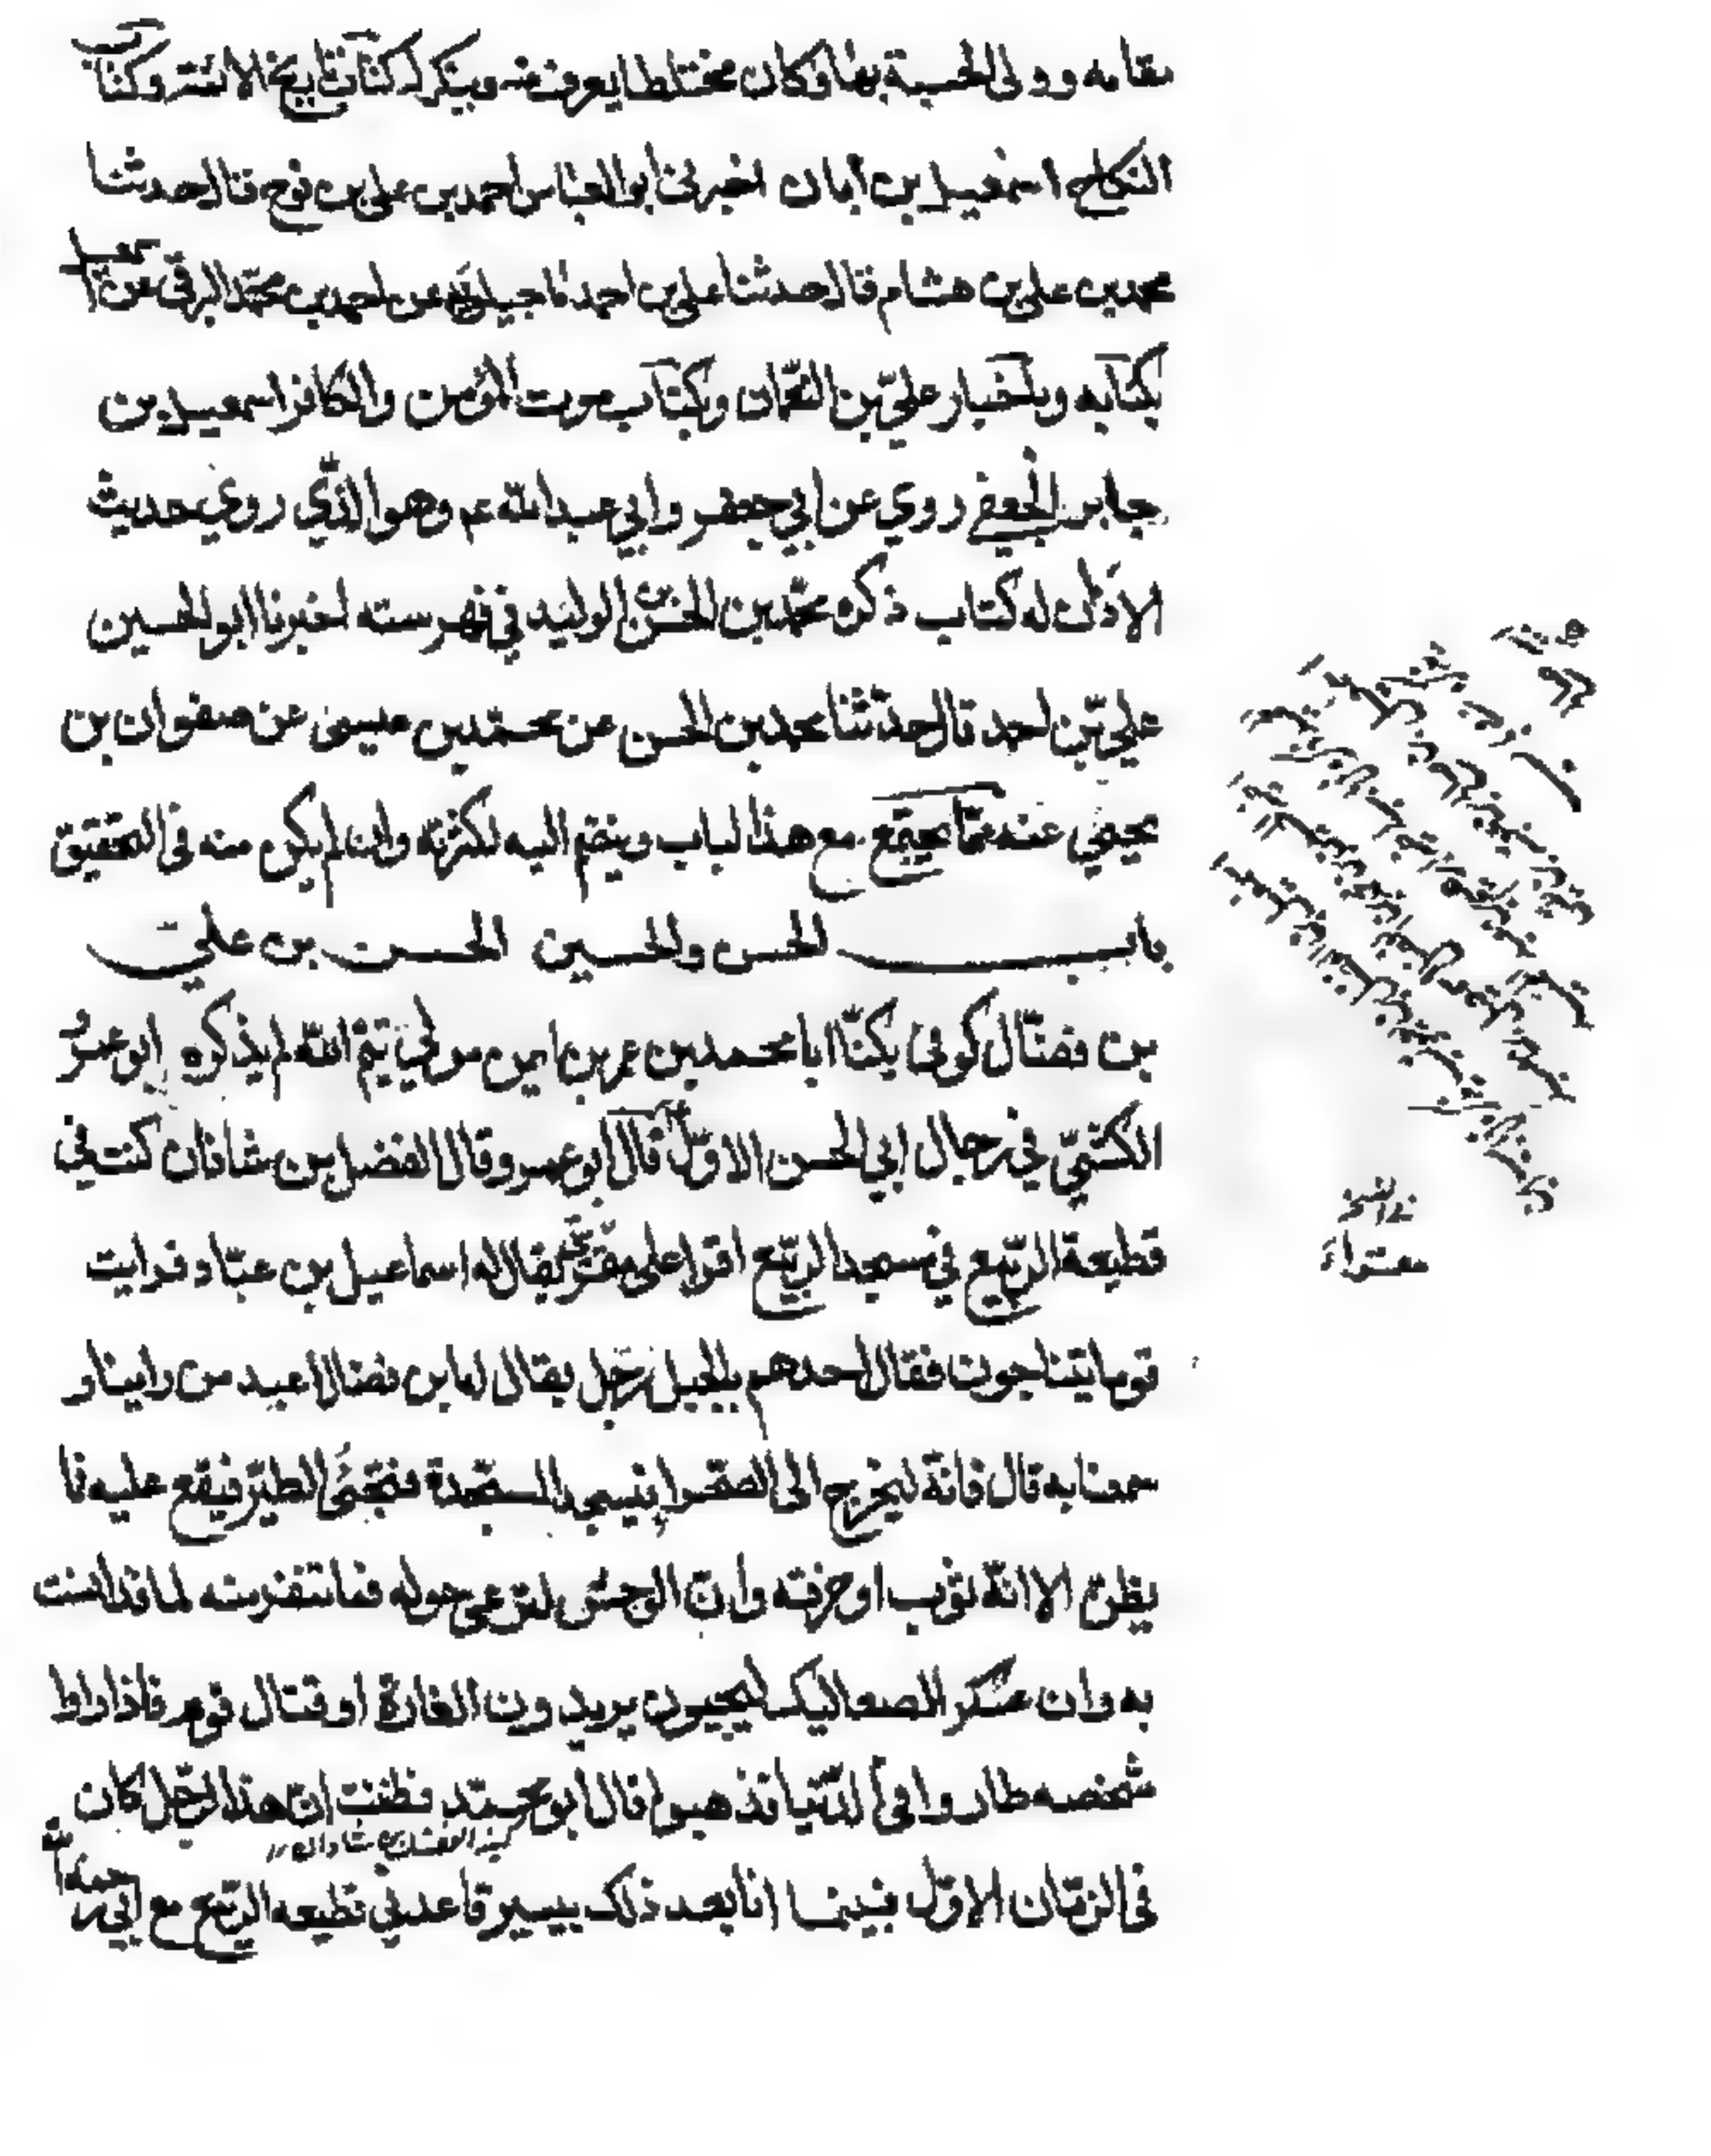 مقامه وولى الحسبة بها وكان مختلطا يعرف منه وينكر له كتاب تاريخ الائمة وكتاب
النكاح اسمعيل بن ابان اخبرني ابو العباس احمد بن علي بن نوح قال حدثنا
محمد بن علي بن هشام قال حدثنا علي بن احمد ماجيلويه عن احمد بن محمد البرقي عن اسمعيل
بكتابه وباخبار علي بن النعمان وبكتاب موت المؤمن والكافر اسمعيل بن
جابر الجعفي روي عن ابي جعفر وابي عبد الله عم وهو الذي روي حديث
الاذان له كتاب ذكره محمد بن الحسن بن الوليد في فهرسته اخبرنا ابو الحسين
علي بن احمد قال حدثنا محمد بن الحسن عن محمد بن عيسى عن صفوان بن
يحيى عنه مما يجتمع مع هذا الباب وينضم اليه لكثرته وان لم يكن منه في التحقيق
باب الحسن والحسين الحسن بن علي
بن فضال كوفي يكنا ابا محمد بن عمر بن ايمن مولي تيم الله لم يذكره ابو عمرو
الكشي في رجال ابي الحسن الاول قال ابو عمرو قال الفضل بن شاذان كنت في
قطيعة الربيع في مسجد الربيع اقرا على مقرئ يقال له اسماعيل بن عباد فرايت
قوما يتناجون فقال احدهم بالجبل رجل يقال له ابن فضال اعبد من راينا و
سمعنا به قال فانه ليخرج الى الصحرا فيسجد السجدة فتجئ الطير فيقع عليه فا
يظن الا انه ثوب او خرقة وان الوحش لترعى حوله فما تنفر منه لما قد انست
به وان عسكر الصعاليك ليجيون يريدون الغارة او قتال قوم فاذا راوا
شخصه طاروا في الدنيا فذهبوا قال ابو محمد فظننت ان هذا الرجل كان
في الزمان الاول فبينما انا بعد ذلك بيسير قاعد في قطيعه الربيع مع ابي رحمه الله